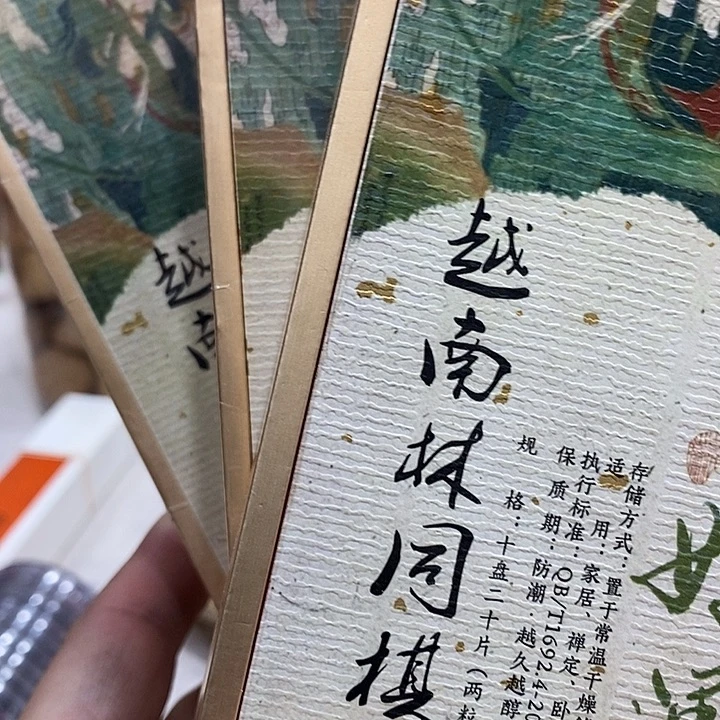 越南林同棋
存储方式：置于常温干燥
适用：家居、禅定、卧
执行标准：QB/T1692.4-20
保质期：防潮·越久越醇
规格：十盘二十片（两粒
越南